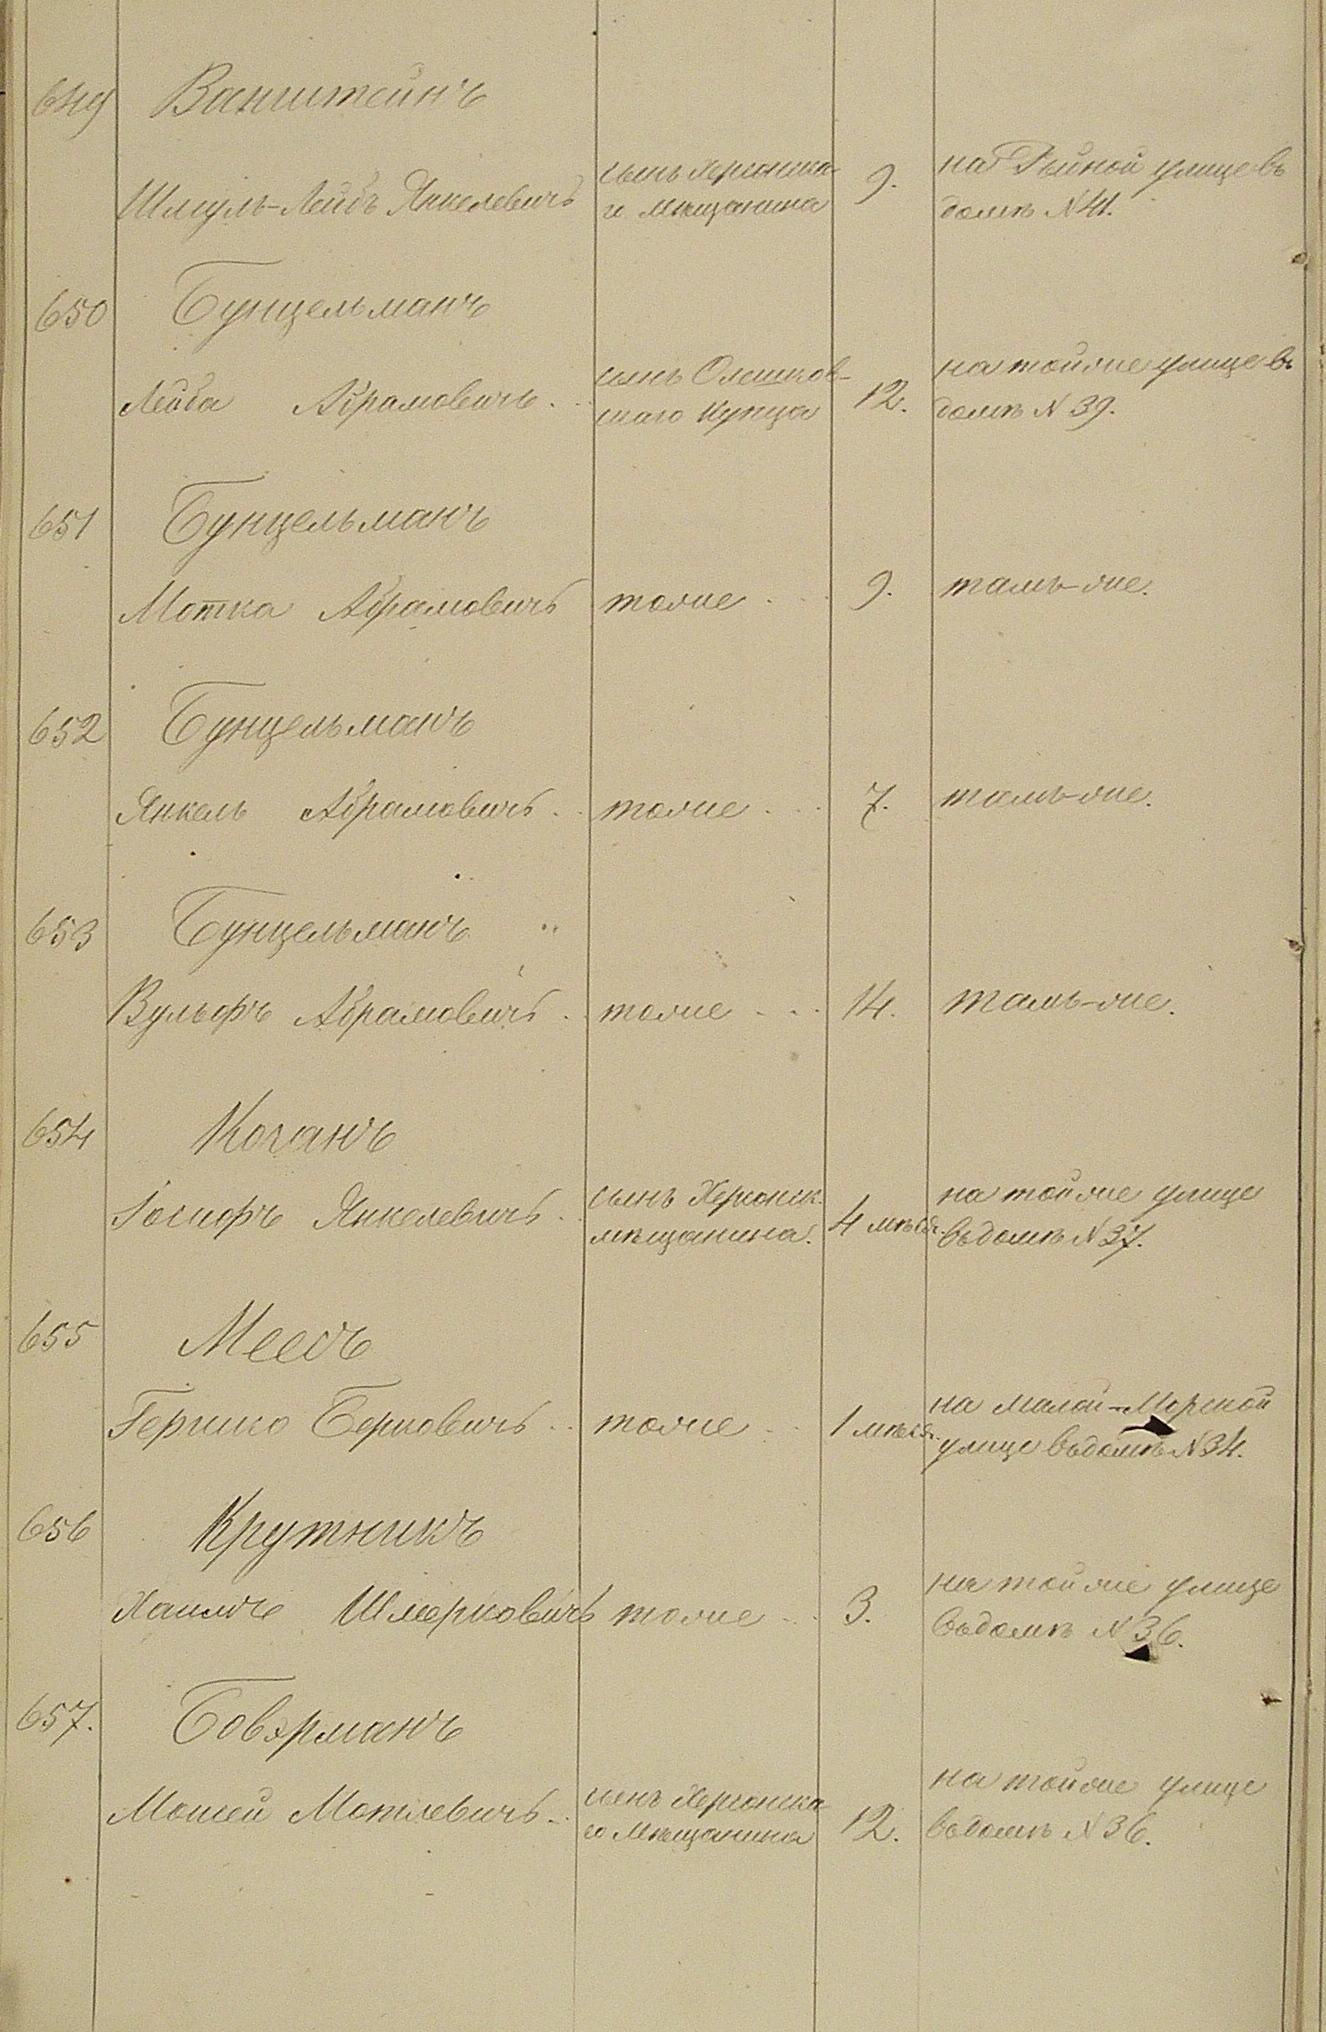 649 Ванштейнъ
Шмуль-Лейбъ Янкелевичъ
сынъ Херсонска-
го мѣщанина
9.
на улице въ
домѣ N 41.
650 Бунцельманъ
Лейба Абрамовичъ
сынъ Олешков-
скаго Купца
12.
на тойже улице въ
домѣ N 39.
651 Бунцельманъ
Мотка Абрамовичъ тоже 9. тамъ-же.
652 Бунцельманъ
Янкель Абрамовичъ тоже 7. тамъ-же.
653 Бунцельманъ
Вульфъ Абрамовичъ тоже 14. тамъ-же.
654 Коганъ
Іосифъ Янкелевичъ
сынъ Херсонск.
мѣщанина.
4 мѣся.
на тойже улице
въ домѣ N 37.
655 Меесъ
Гершко Берковичъ тоже 1 мѣся.
на малой-Морской
улице въ домѣ N 34.
656 Крутникъ
Хаимъ Шмерковичъ тоже 3.
на тойже улице
въ домѣ N 36.
657. Бовэрманъ
Мошей Мотлевичъ
сынъ Херсонска-
го Мѣщанина
12.
на тойже улице
въ домѣ N 36.